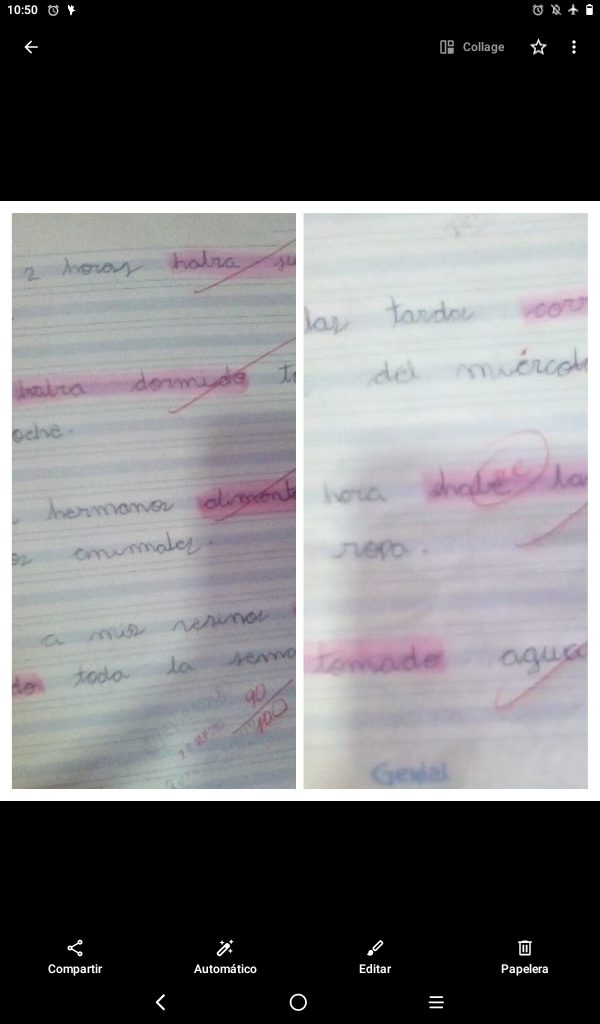 10:50
Collage
2 horas habra su
habra dormido to
oche.
hermanos alimenta
animales.
a mis vecinos
do toda la sema
90
100
las tardes corr
del miércole
hora habe la
ropa.
tomado agua
Genial
Compartir
Automático
Editar
Papelera